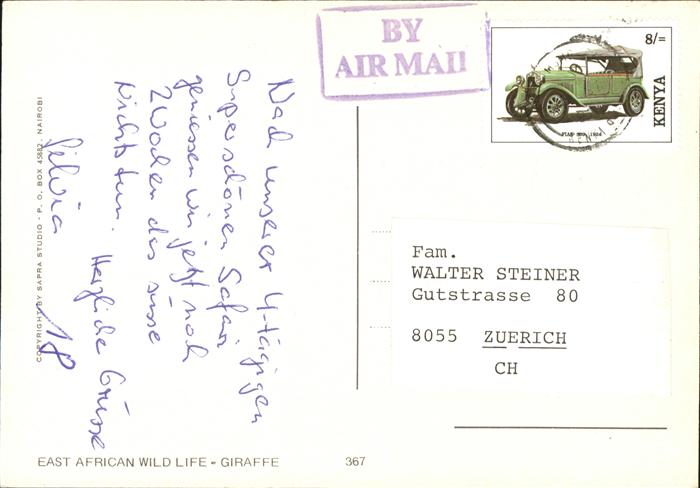 BY
AIR MAIL
8/=
KENYA
Nach unserer 4-tägigen
Superschönen Safari
geniessen wir jetzt noch
2 Wochen das süsse
Nichtstun. Herzliche Grüsse
Silvia
COPYRIGHT BY SAPRA STUDIO - P. O. BOX 45882, NAIROBI
Fam.
WALTER STEINER
Gutstrasse 80
8055 ZUERICH
CH
EAST AFRICAN WILD LIFE - GIRAFFE 367